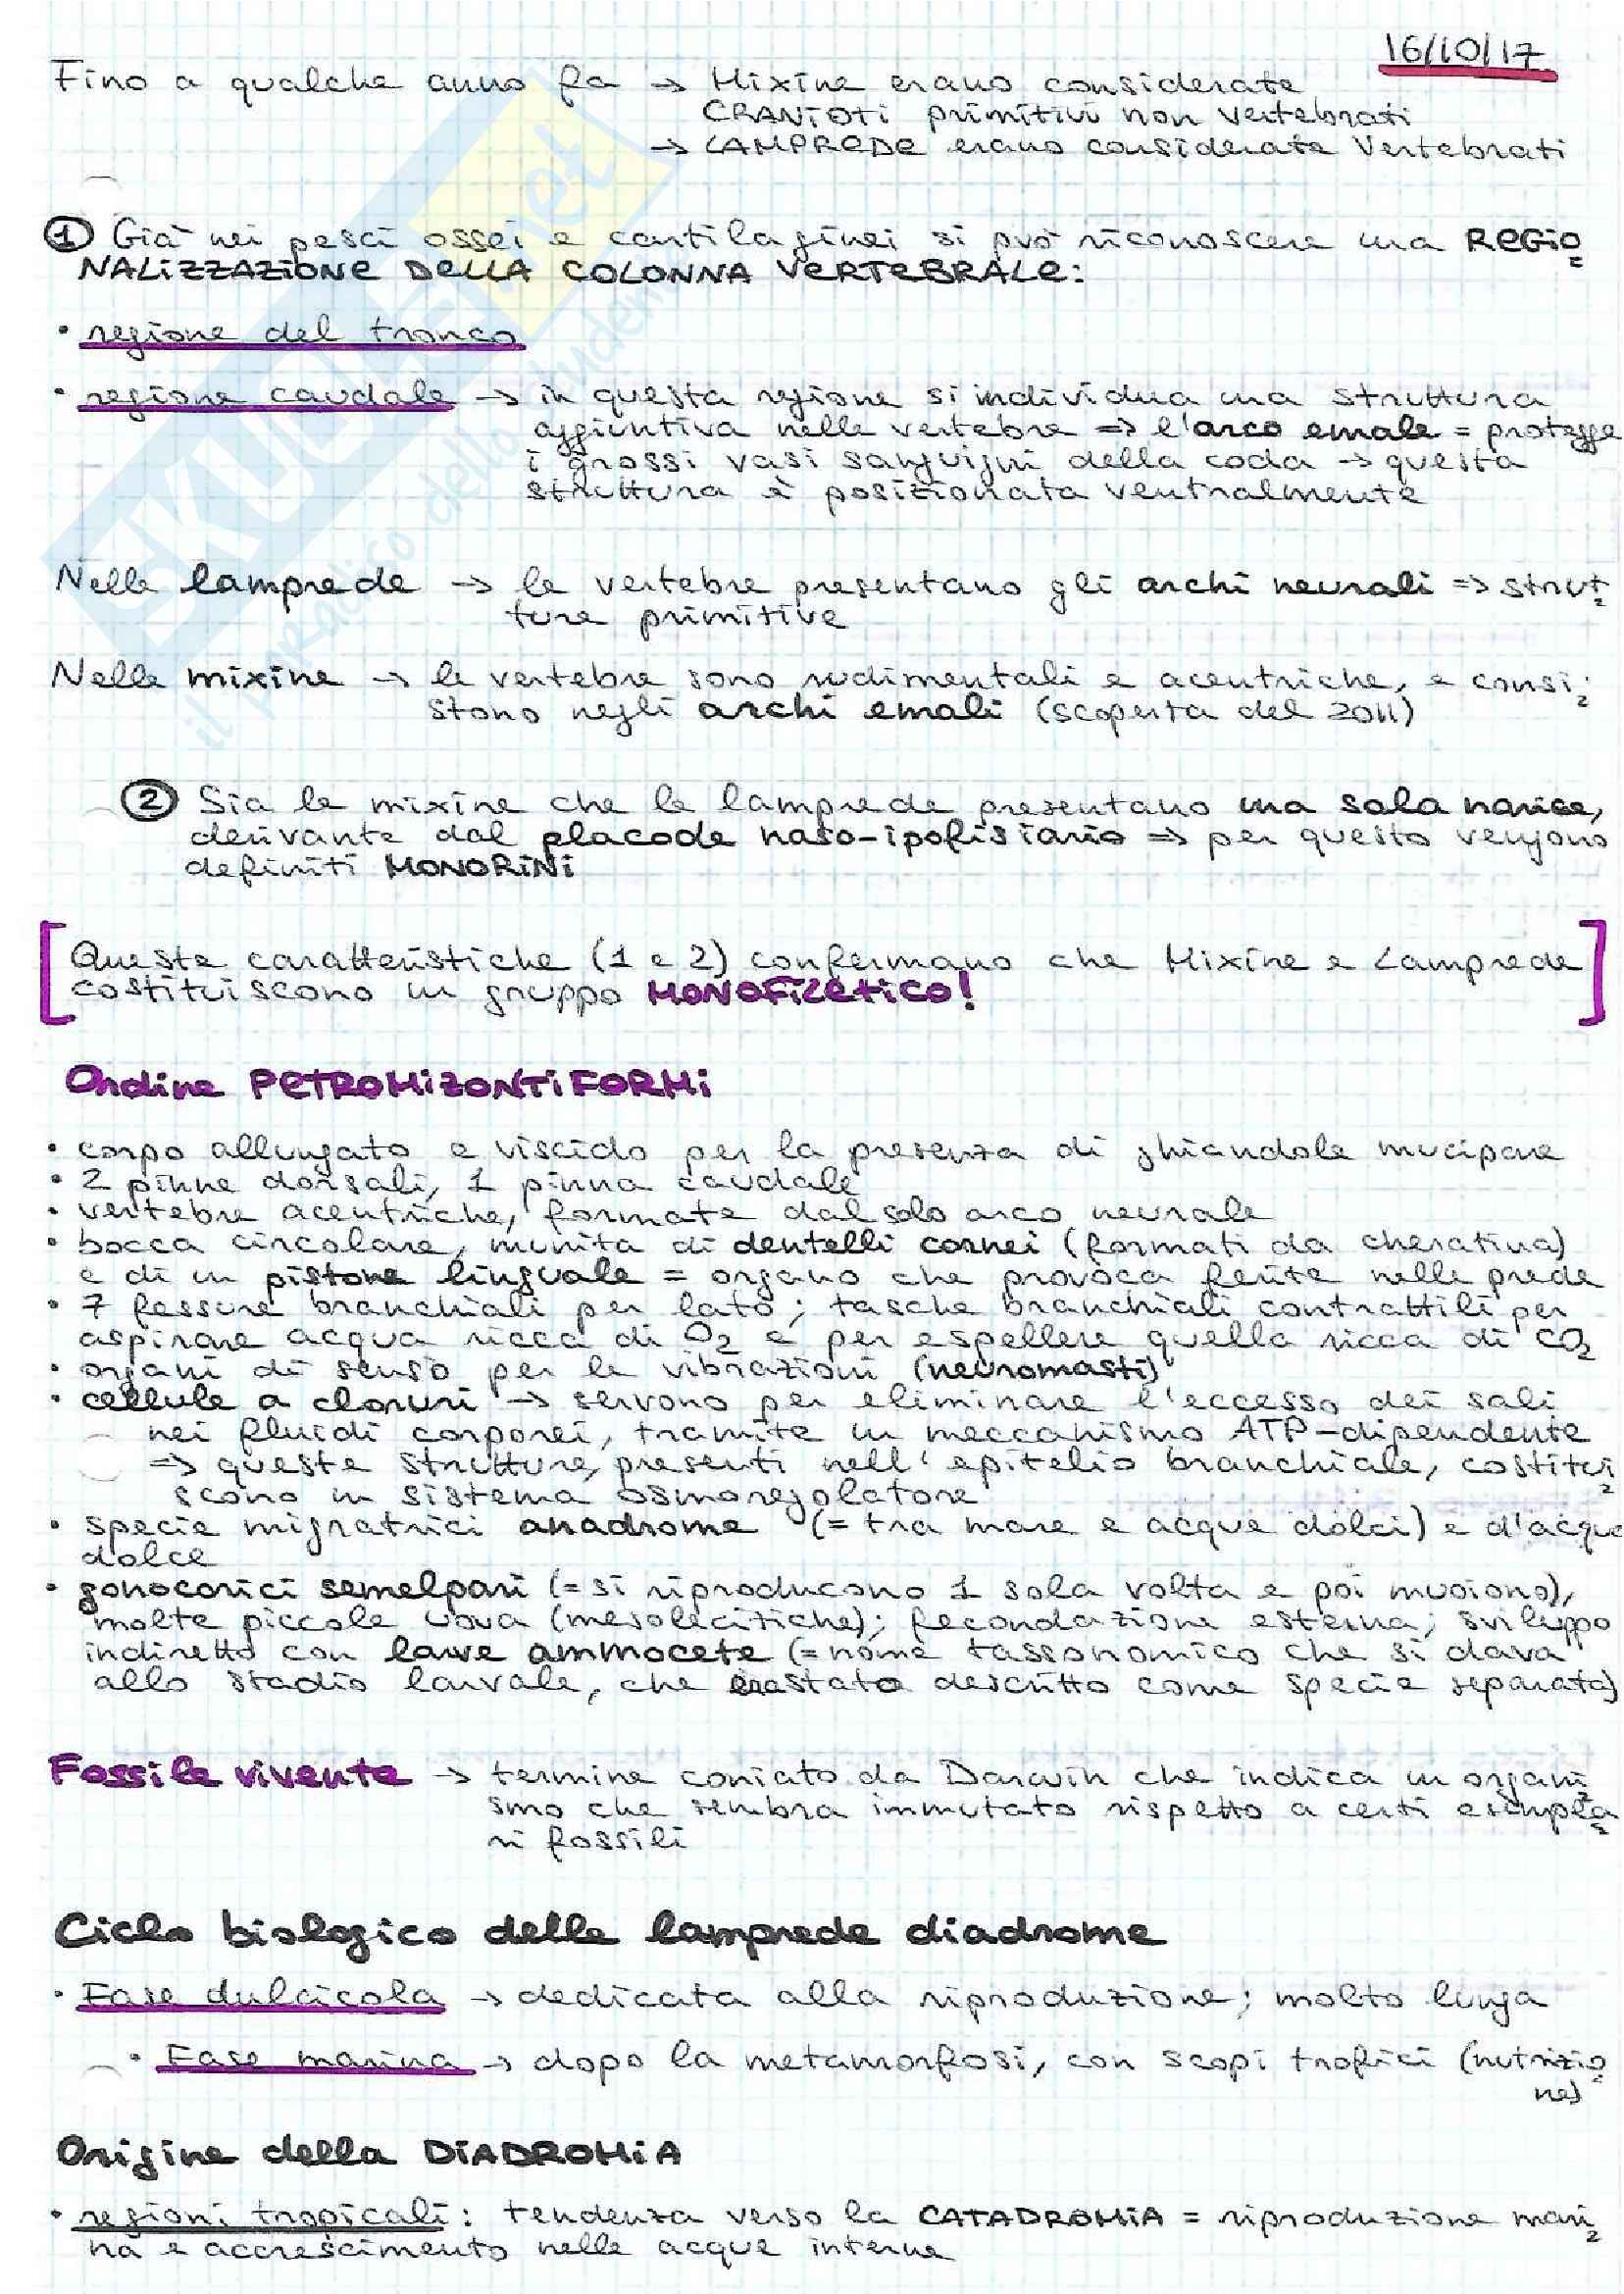 16/10/17
Fino a qualche anno fa → Mixine erano considerate
CRANIOTI primitivi non vertebrati
→ LAMPREDE erano considerate Vertebrati
① Già nei pesci ossei e cartilaginei si può riconoscere una REGIO
NALIZZAZIONE DELLA COLONNA VERTEBRALE:
• regione del tronco
• regione caudale → in questa regione si individua una struttura
aggiuntiva nelle vertebre => l'arco emale = protegge
i grossi vasi sanguigni della coda → questa
struttura è posizionata ventralmente
Nelle lamprede → le vertebre presentano gli archi neurali => strut
ture primitive
Nelle mixine → le vertebre sono rudimentali e acentriche, e consi
stono negli archi emali (scoperta del 2011)
② Sia le mixine che le lamprede presentano una sola narice,
derivante dal placode naso-ipofisiario => per questo vengono
definiti MONORINI
[Queste caratteristiche (1 e 2) confermano che Mixine e Lamprede
costituiscono un gruppo MONOFILETICO!]
Ordine PETROMIZONTIFORMI
• corpo allungato e viscido per la presenza di ghiandole mucipare
• 2 pinne dorsali, 1 pinna caudale
• vertebre acentriche, formate dal solo arco neurale
• bocca circolare, munita di dentelli cornei (formati da cheratina)
e di un pistone linguale = organo che provoca ferite nelle prede
• 7 fessure branchiali per lato; tasche branchiali contrattili per
aspirare acqua ricca di O2 e per espellere quella ricca di CO2
• organi di senso per le vibrazioni (neuromasti)
• cellule a cloruri → servono per eliminare l'eccesso dei sali
nei fluidi corporei, tramite un meccanismo ATP-dipendente
=> queste strutture, presenti nell'epitelio branchiale, costitui
scono un sistema osmoregolatore
• specie migratrici anadrome (= tra mare e acque dolci) e d'acqua
dolce
• gonocorici semelpari (= si riproducono 1 sola volta e poi muoiono),
molte piccole uova (mesolecitiche); fecondazione esterna; sviluppo
indiretto con larve ammocete (= nome tassonomico che si dava
allo stadio larvale, che era stato descritto come specie separata)
Fossile vivente → termine coniato da Darwin che indica un organi
smo che sembra immutato rispetto a certi esempla
ri fossili
Ciclo biologico delle lamprede diadrome
• Fase dulcicola → dedicata alla riproduzione; molto lunga
• Fase marina → dopo la metamorfosi, con scopi trofici (nutrizio
ne)
Origine della DIADROMIA
• regioni tropicali: tendenza verso la CATADROMIA = riproduzione mari
na e accrescimento nelle acque interne
SKUOLA.net